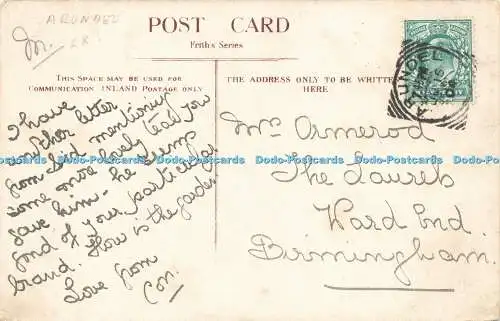 ARUNDEL
POST CARD
Frith's Series
THIS SPACE MAY BE USED FOR
COMMUNICATION INLAND POSTAGE ONLY
THE ADDRESS ONLY TO BE WRITTEN
HERE
I have
another letter
from mentioning
some more lovely tea you
gave him - he seems
fond of your particular
brand. How is the garden
Love from
Con.
Mrs Ormerod
The Laurels
Ward End.
Birmingham.
ARUNDEL
Dodo-Postcards Dodo-Postcards Dodo-Postcards Dodo-Postcards Dodo-Postcards